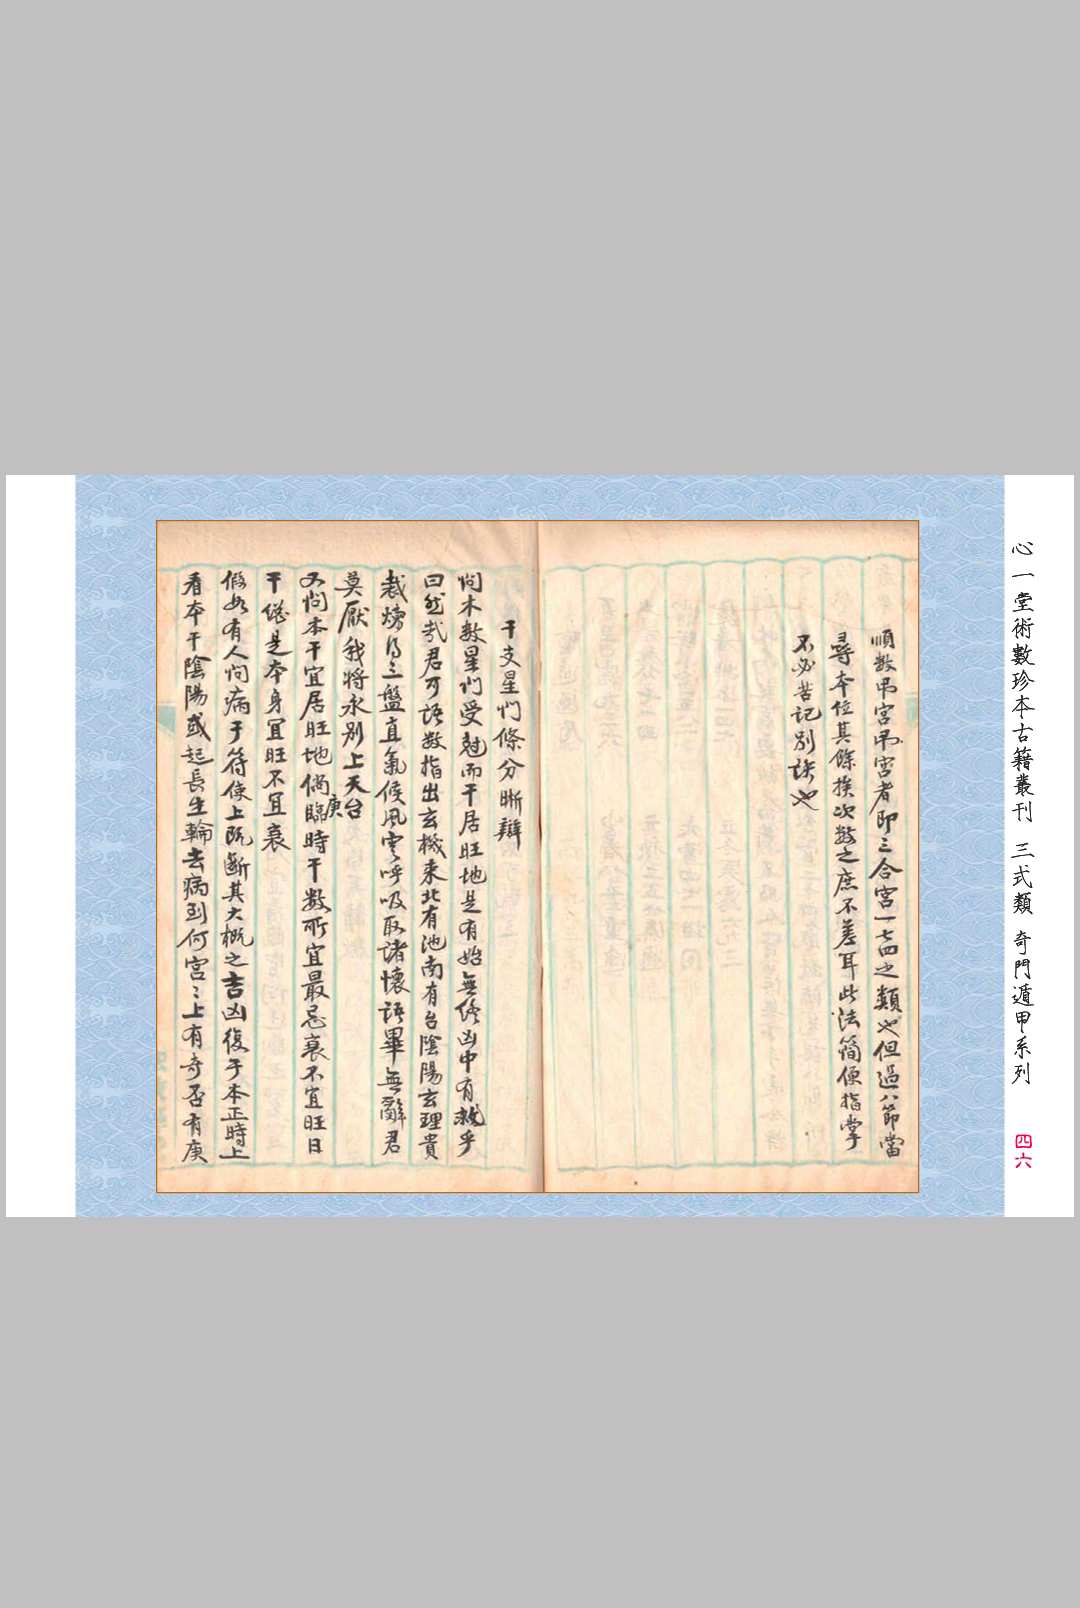 心一堂術數珍本古籍叢刊 三式類 奇門遁甲系列
四六
順數吊宮吊宮者即三合宮一七四之類也但過八節當
尋本位其餘挨次數之庶不差耳此法簡便指掌
不必苦記別訣也
干支星門條分晰辯
问本數星门受尅而干居旺地是有始無終凶中有救乎
曰然哉君可語數指出玄機来北有池南有台陰陽玄理貴
裁 三盤直氣候風雲呼吸取諸懷語畢無辭君
莫厭我將永別上天台
又问本干宜居旺地倘臨時干數所宜最忌衰不宜旺日
庚
干總是本身宜旺不宜衰
假如有人问病于符使上既斷其大概之吉凶復于本正時上
看本干陰陽或起長生輪去病到何宮〻上有奇否有庚